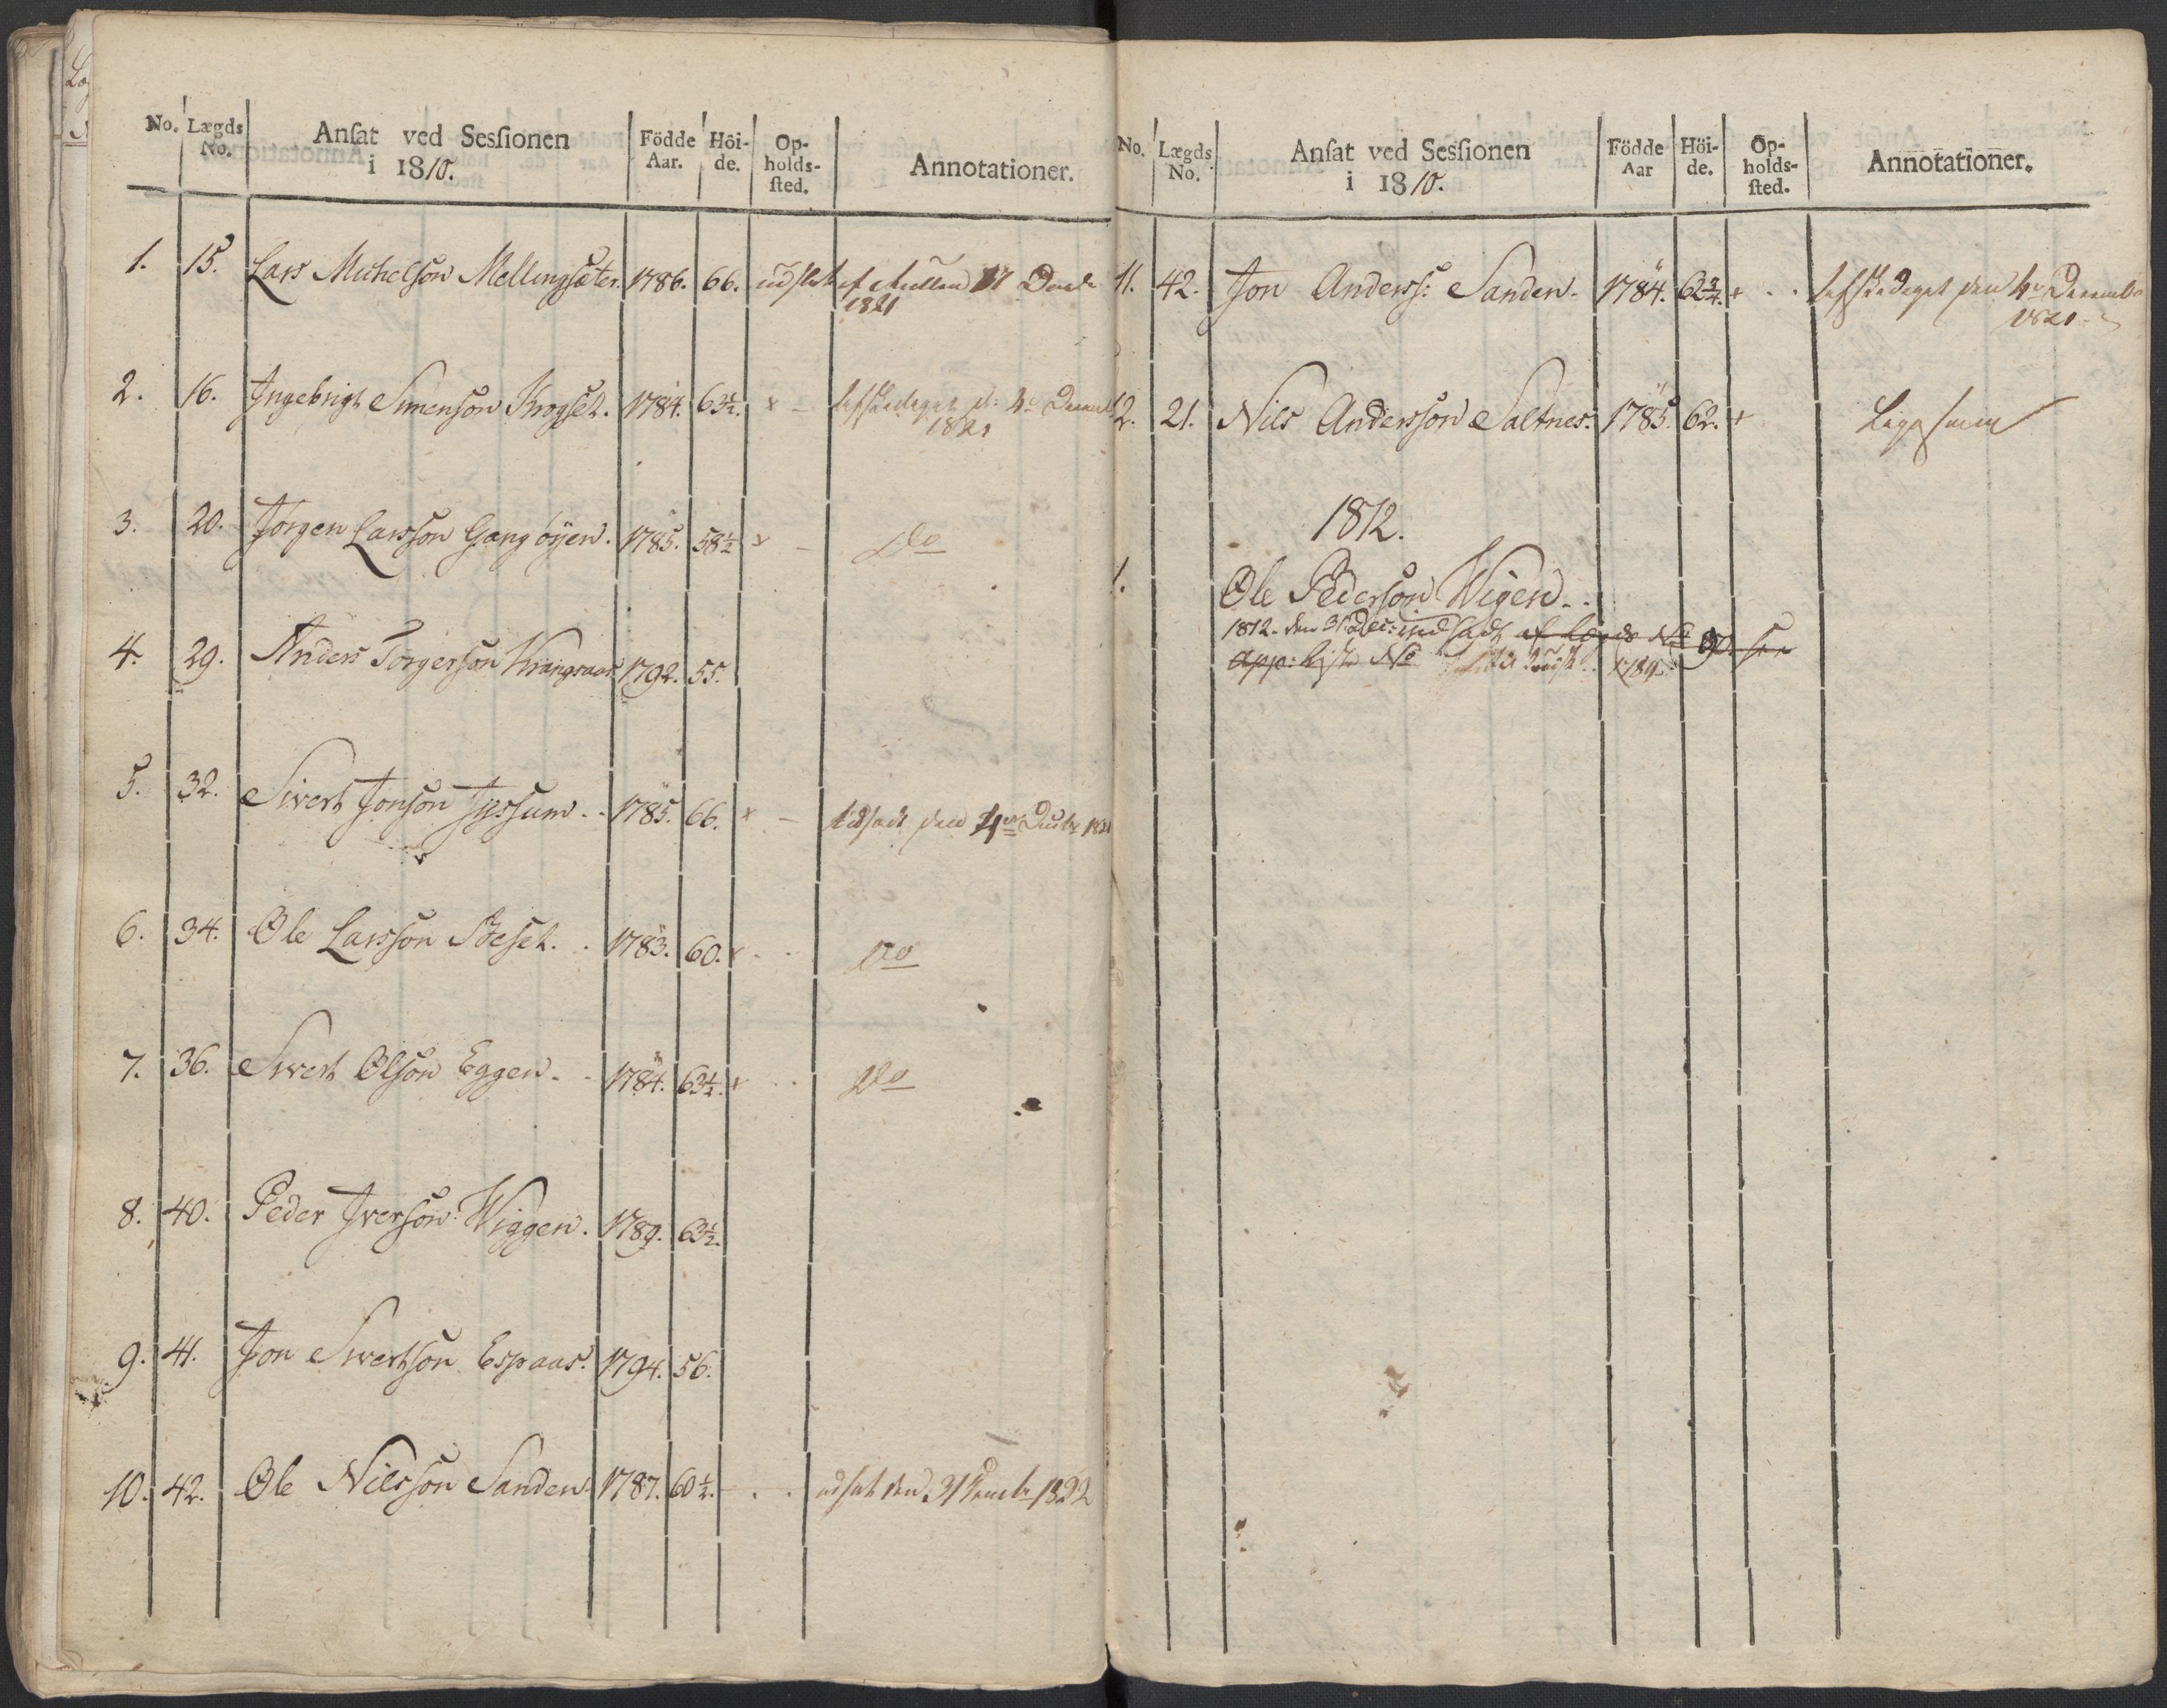 No. Lægds No. Ansat ved Sessionen i 1810. Födde Aar. Höi-de. Op-holds-sted. Annotationer.
1. 15. Lars Michelson Mellingsæter. 1786. 66. udslet af Rullen 17 Decbr
1821
2. 16. Ingebrigt Simenson Krogset. 1784. 63½. x - Afskediget d: 4de Decembr
1821
3. 20. Jörgen Larsson Gangöyen. 1785. 58½ x - Do
4. 29. Anders Torgerson Krangsaas 1792. 55.
5. 32. Sivert Jonson Jyssum. - 1785. 66. x - Udsadt den 4de Decbr 1821
6. 34. Ole Larsson Beset. . 1783. 60. x . . Do
7. 36. Sivert Olson Eggen. - 1784. 63½. x . . Do
8. 40. Peder Iverson Wiggen. 1789. 63½.
9. 41. Jon Sivertson Espaas. 1794. 56.
10. 42. Ole Nilsson Sanden. 1787. 60½. - . . udsat den 31 1822
No. Lægds No. Ansat ved Sessionen i 1810. Födde Aar Höi-de. Op-holds-sted. Annotationer.
11. 42. Jon Anderss: Sanden. 1784. 62¾. x . . Afskediget den 4de Decembr
1821
12. 21. Nils Andersson Saltnes. 1785. 62. x Ligesaa
1812.
1. Ole Pederson Wigen. .
1812. den 31 Dec: indsadt af Lægds No 90
App: Liste No 1789.